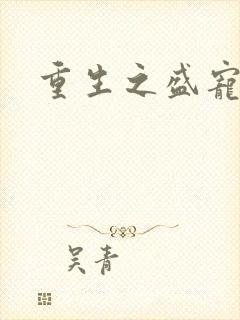 重生之盛宠
吴青